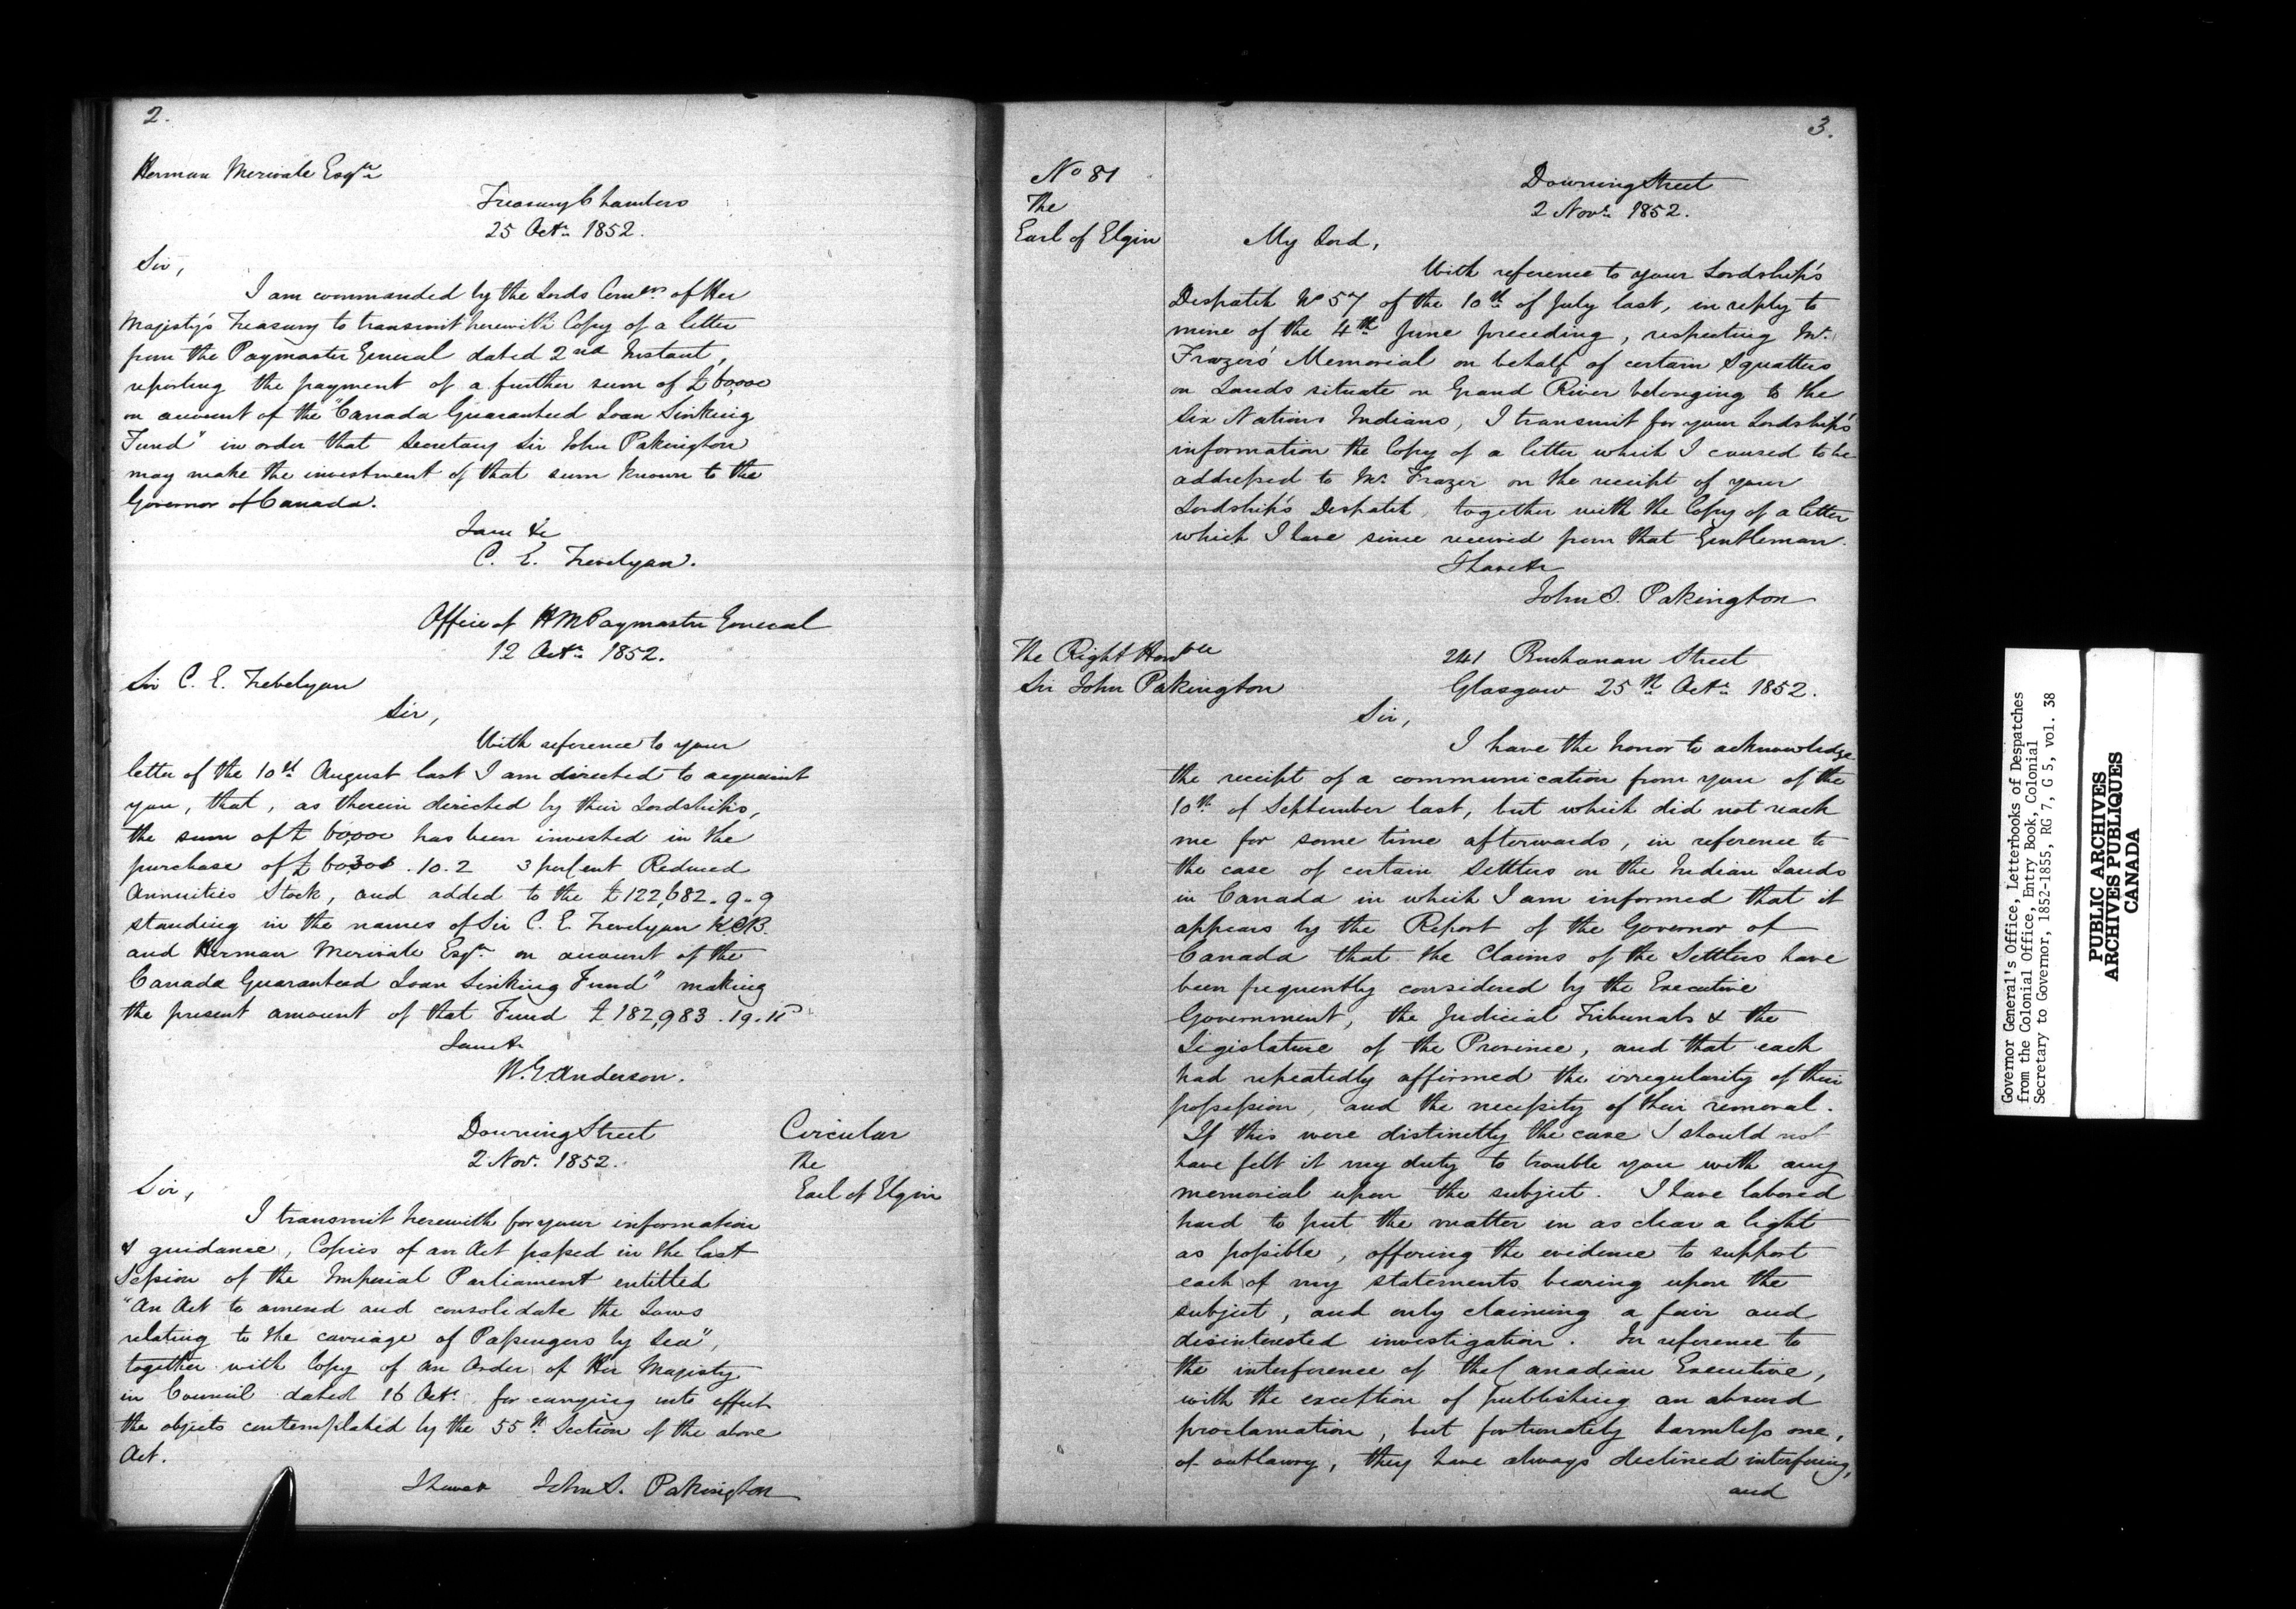 2.
Herman Merivale Esqre
Treasury Chambers
25 Octr 1852.
Sir,
I am commanded by the Lords Comrs of Her
Majesty's Treasury to transmit herewith Copy of a letter
from the Paymaster General dated 2nd Instant,
reporting the payment of a further sum of £60,000
on account of the "Canada Guaranteed Loan Sinking
Fund" in order that Secretary Sir John Pakington
may make the investment of that sum known to the
Governor of Canada.
I am &c
C. E. Trevelyan.
Office of HM Paymaster General
12 Octr 1852.
Sir C. E. Trevelyan
Sir,
With reference to your
letter of the 10th August last I am directed to acquaint
you, that, as therein directed by their Lordships,
the sum of £ 60,000 has been invested in the
purchase of £ 60,301 . 10 . 2 3 perCent Reduced
Annuities Stock, and added to the £122,682 . 9 . 9
standing in the names of Sir C. E. Trevelyan K.C.B.
and Herman Merivale Esqr on account of the
Canada Guaranteed Loan Sinking Fund" making
the present amount of that Fund £ 182,983 . 19 . 11
I am &c
W. G. Anderson.
Downing Street
2 Nov. 1852.
Circular
The
Earl of Elgin
Sir,
I transmit herewith for your information
& guidance, Copies of an Act passed in the last
Session of the Imperial Parliament entitled
"An Act to amend and consolidate the Laws
relating to the carriage of Passengers by Sea",
together with Copy of an Order of Her Majesty
in Council dated 16 Octr for carrying into effect
the objects contemplated by the 55th Section of the above
Act.
I have &c John S. Pakington
3.
No 81
The
Earl of Elgin
Downing Street
2 Novr 1852.
My Lord,
With reference to your Lordship's
Despatch No 57 of the 10th of July last, in reply to
mine of the 4th June preceding, respecting Mr
Frazer's Memorial on behalf of certain Squatters
on Lands situate on Grand River belonging to the
Six Nations Indians, I transmit for your Lordship's
information the Copy of a letter which I caused to be
addressed to Mr Frazer on the receipt of your
Lordship's Despatch, together with the Copy of a letter
which I have since received from that Gentleman.
I have &c
John S. Pakington
The Right Honble
Sir John Pakington
241 Buchanan Street
Glasgow 25th Octr 1852.
Sir,
I have the honor to acknowledge
the receipt of a communication from you of the
10th of September last, but which did not reach
me for some time afterwards, in reference to
the case of certain Settlers on the Indian Lands
in Canada in which I am informed that it
appears by the Report of the Governor of
Canada that the Claims of the Settlers have
been frequently considered by the Executive
Government, the Judicial Tribunals & the
Legislature of the Province, and that each
had repeatedly affirmed the irregularity of their
possession, and the necessity of their removal.
If this were distinctly the case I should not
have felt it my duty to trouble you with any
memorial upon the subject. I have labored
hard to put the matter in as clear a light
as possible, offering the evidence to support
each of my statements bearing upon the
subject, and only claiming a fair and
disinterested investigation. In reference to
the interference of the Canadian Executive,
with the exception of publishing an absurd
proclamation, but fortunately harmless one,
of outlawry, they have always declined interfering,
and
Governor General's Office, Letterbooks of Despatches
from the Colonial Office, Entry Book, Colonial
Secretary to Governor, 1852-1855, RG 7, G 5, vol. 38
PUBLIC ARCHIVES
ARCHIVES PUBLIQUES
CANADA